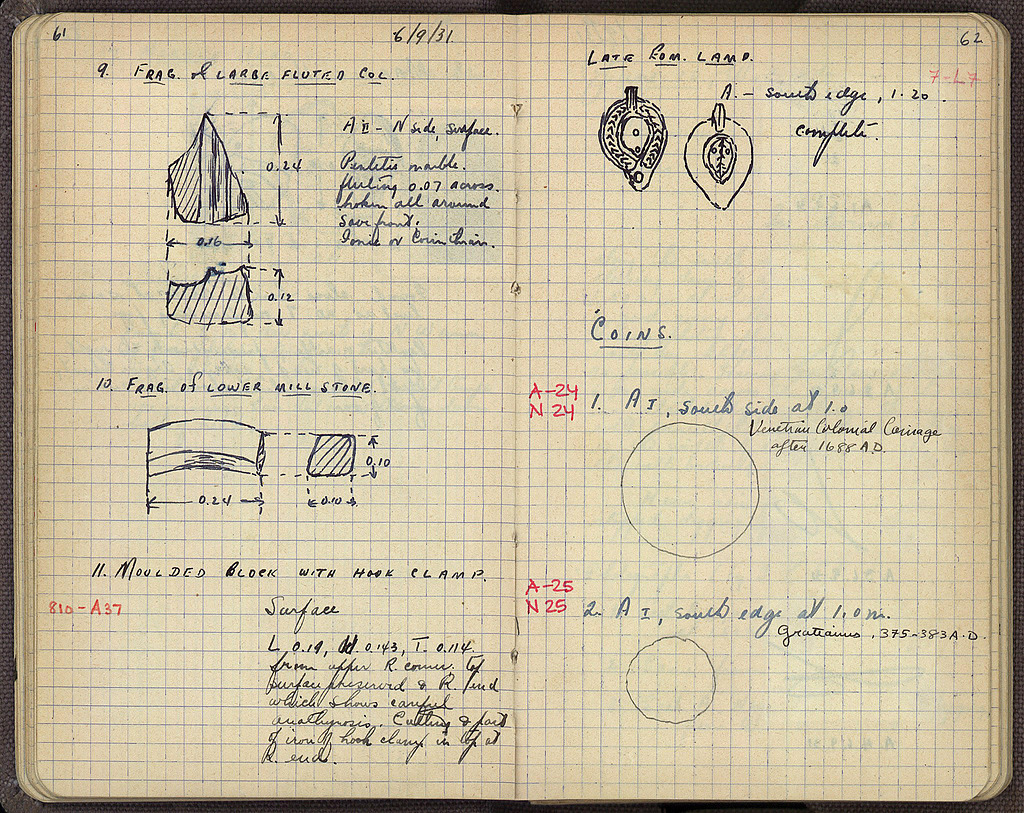 61
6/9/31
9. FRAG. of LARGE FLUTED COL.
A II - N side, surface.
0.24
Pentelic marble.
fluting 0.07 across.
broken all around
save front.
Ionic or Corinthian.
0.16
0.12
10. FRAG. of LOWER MILL STONE.
0.10
0.24
0.10
11. MOULDED BLOCK WITH HOOK CLAMP.
810-A37
Surface
L. 0.19, W 0.143, T. 0.114.
from upper R. corner. top
surface preserved & R. end
which shows careful
anathyrosis. Cutting & part
of iron of hook clamp in top at
R. end.
62
LATE ROM. LAMP.
7-L7
A. - south edge, 1.20.
complete.
COINS.
A-24
N 24
1. A I, south side at 1.0
Venetian Colonial Coinage
after 1688 A.D.
A-25
N 25
2. A I, south edge at 1.0 m.
Gratianus, 375-383 A.D.